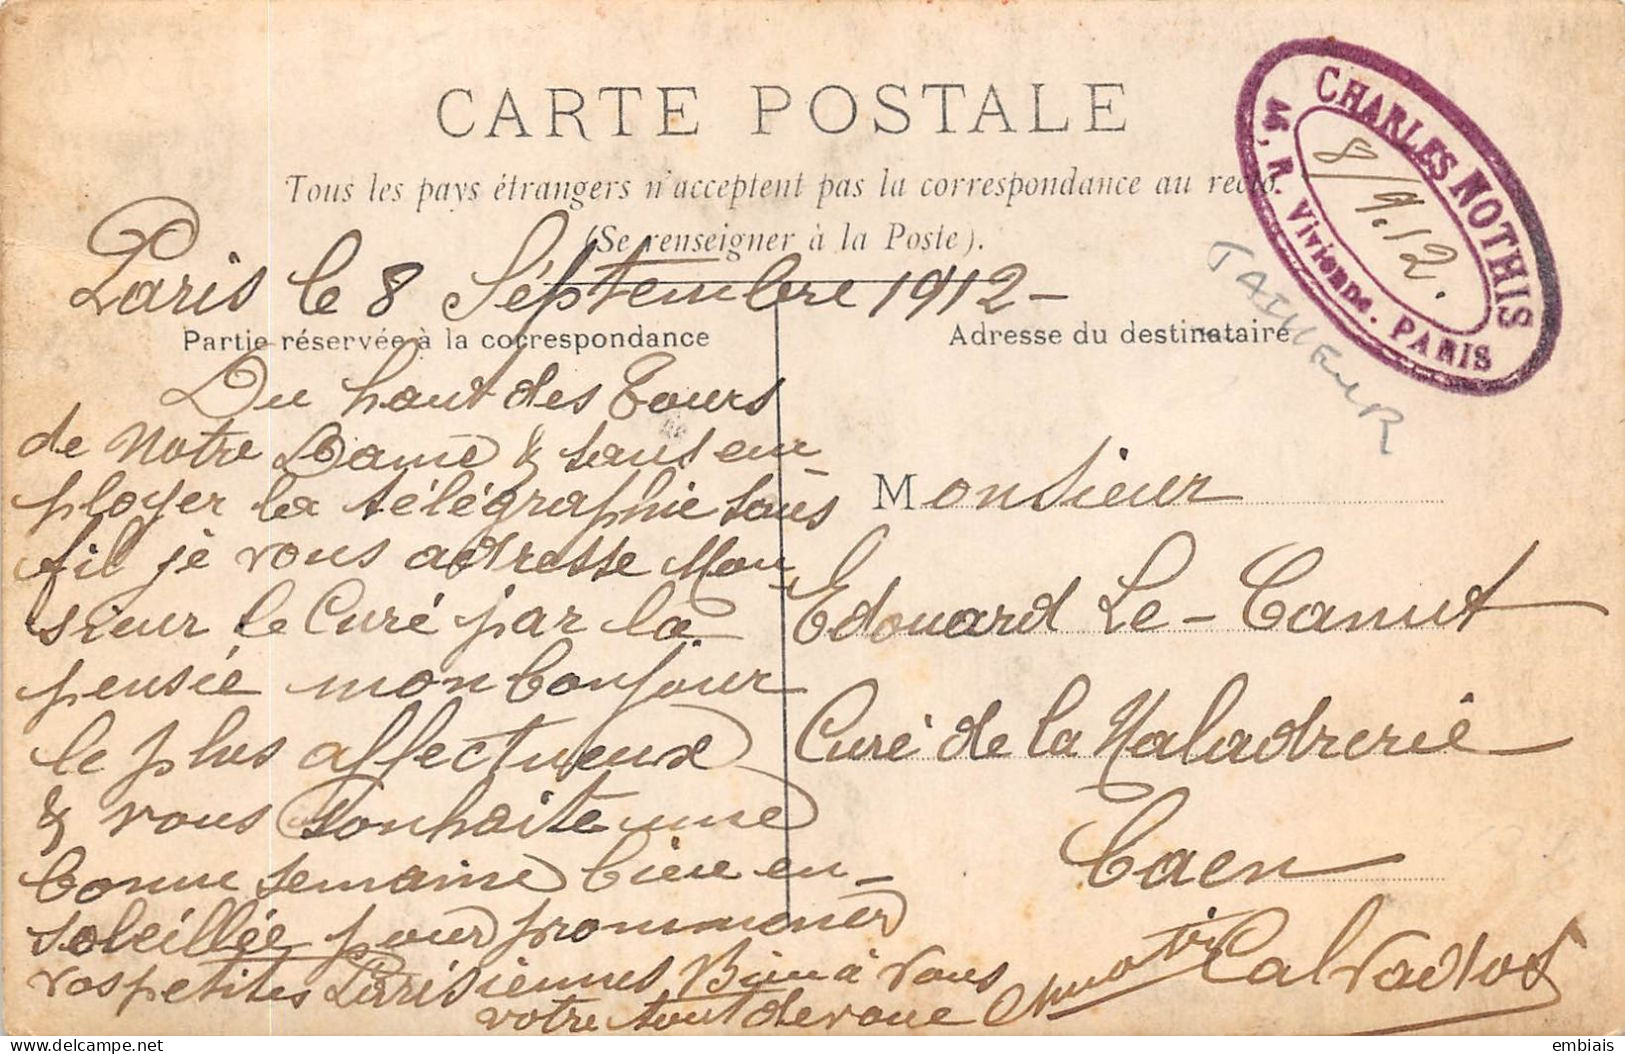 CARTE POSTALE
Tous les pays étrangers n'acceptent pas la correspondance au recto
(Se renseigner à la Poste).
CHARLES NOTHIS
R. Vivienne. PARIS
8/9.12.
TAILLEUR
Paris le 8 Séptembre 1912-
Partie réservée à la correspondance
Du haut des Tours
de Notre Dame & sans em-
ployer la télégraphie sans
fil je vous adresse Mon-
sieur le Curé par la
pensée mon bonjour
le plus affectueux
& vous souhaite une
bonne semaine bien en-
soleillée pour prommener
vos petites Parisiennes Bien à vous
votre tout devoué
Adresse du destinataire
Monsieur
Edouard Le-Canut
Curé de la Maladrerie
Caen
Calvados
embiais
Delcampe.net